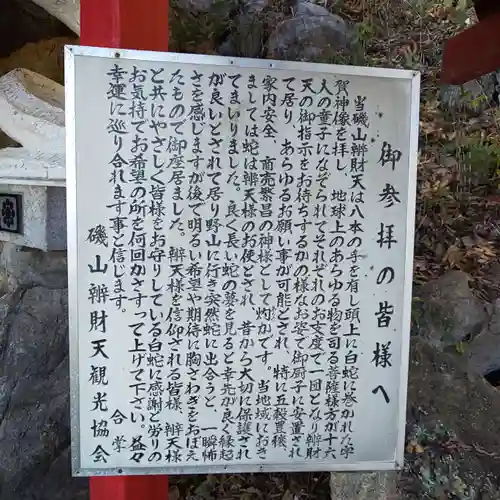 御参拝の皆様へ
当磯山辨財天は八本の手を有し頭上に白蛇に巻かれた宇
賀神像を拝し、地球上のあらゆる物を司る菩薩様方が十六
人の童子になぞられてそれぞれのお支度で一団となり辨財
天の御指示をお待ちするかの様なお姿で御厨子に安置され
て居り、あらゆるお願い事が可能とされ、特に五穀豊穣、
家内安全、商売繁昌の神様として灼かです。当地域におき
ましては蛇は辨天様のお使とされ、昔から大切に保護され
てまいりました。良く長い蛇の夢を見ると幸先が良く縁起
が良いとされて居り野山に行き突然蛇に出会うと、一瞬怖
さを感じますが後で明るい希望や期待に胸さわぎをおぼえ
たもので御座居ました。辨天様を信仰される皆様、辨天様
と共にやさしく皆様をお守りしている白蛇に感謝と労りの
お気持でお希望の所を何回かさすって上げて下さい。益々
幸運に巡り合れます事と信じます。
合掌
磯山辨財天観光協会